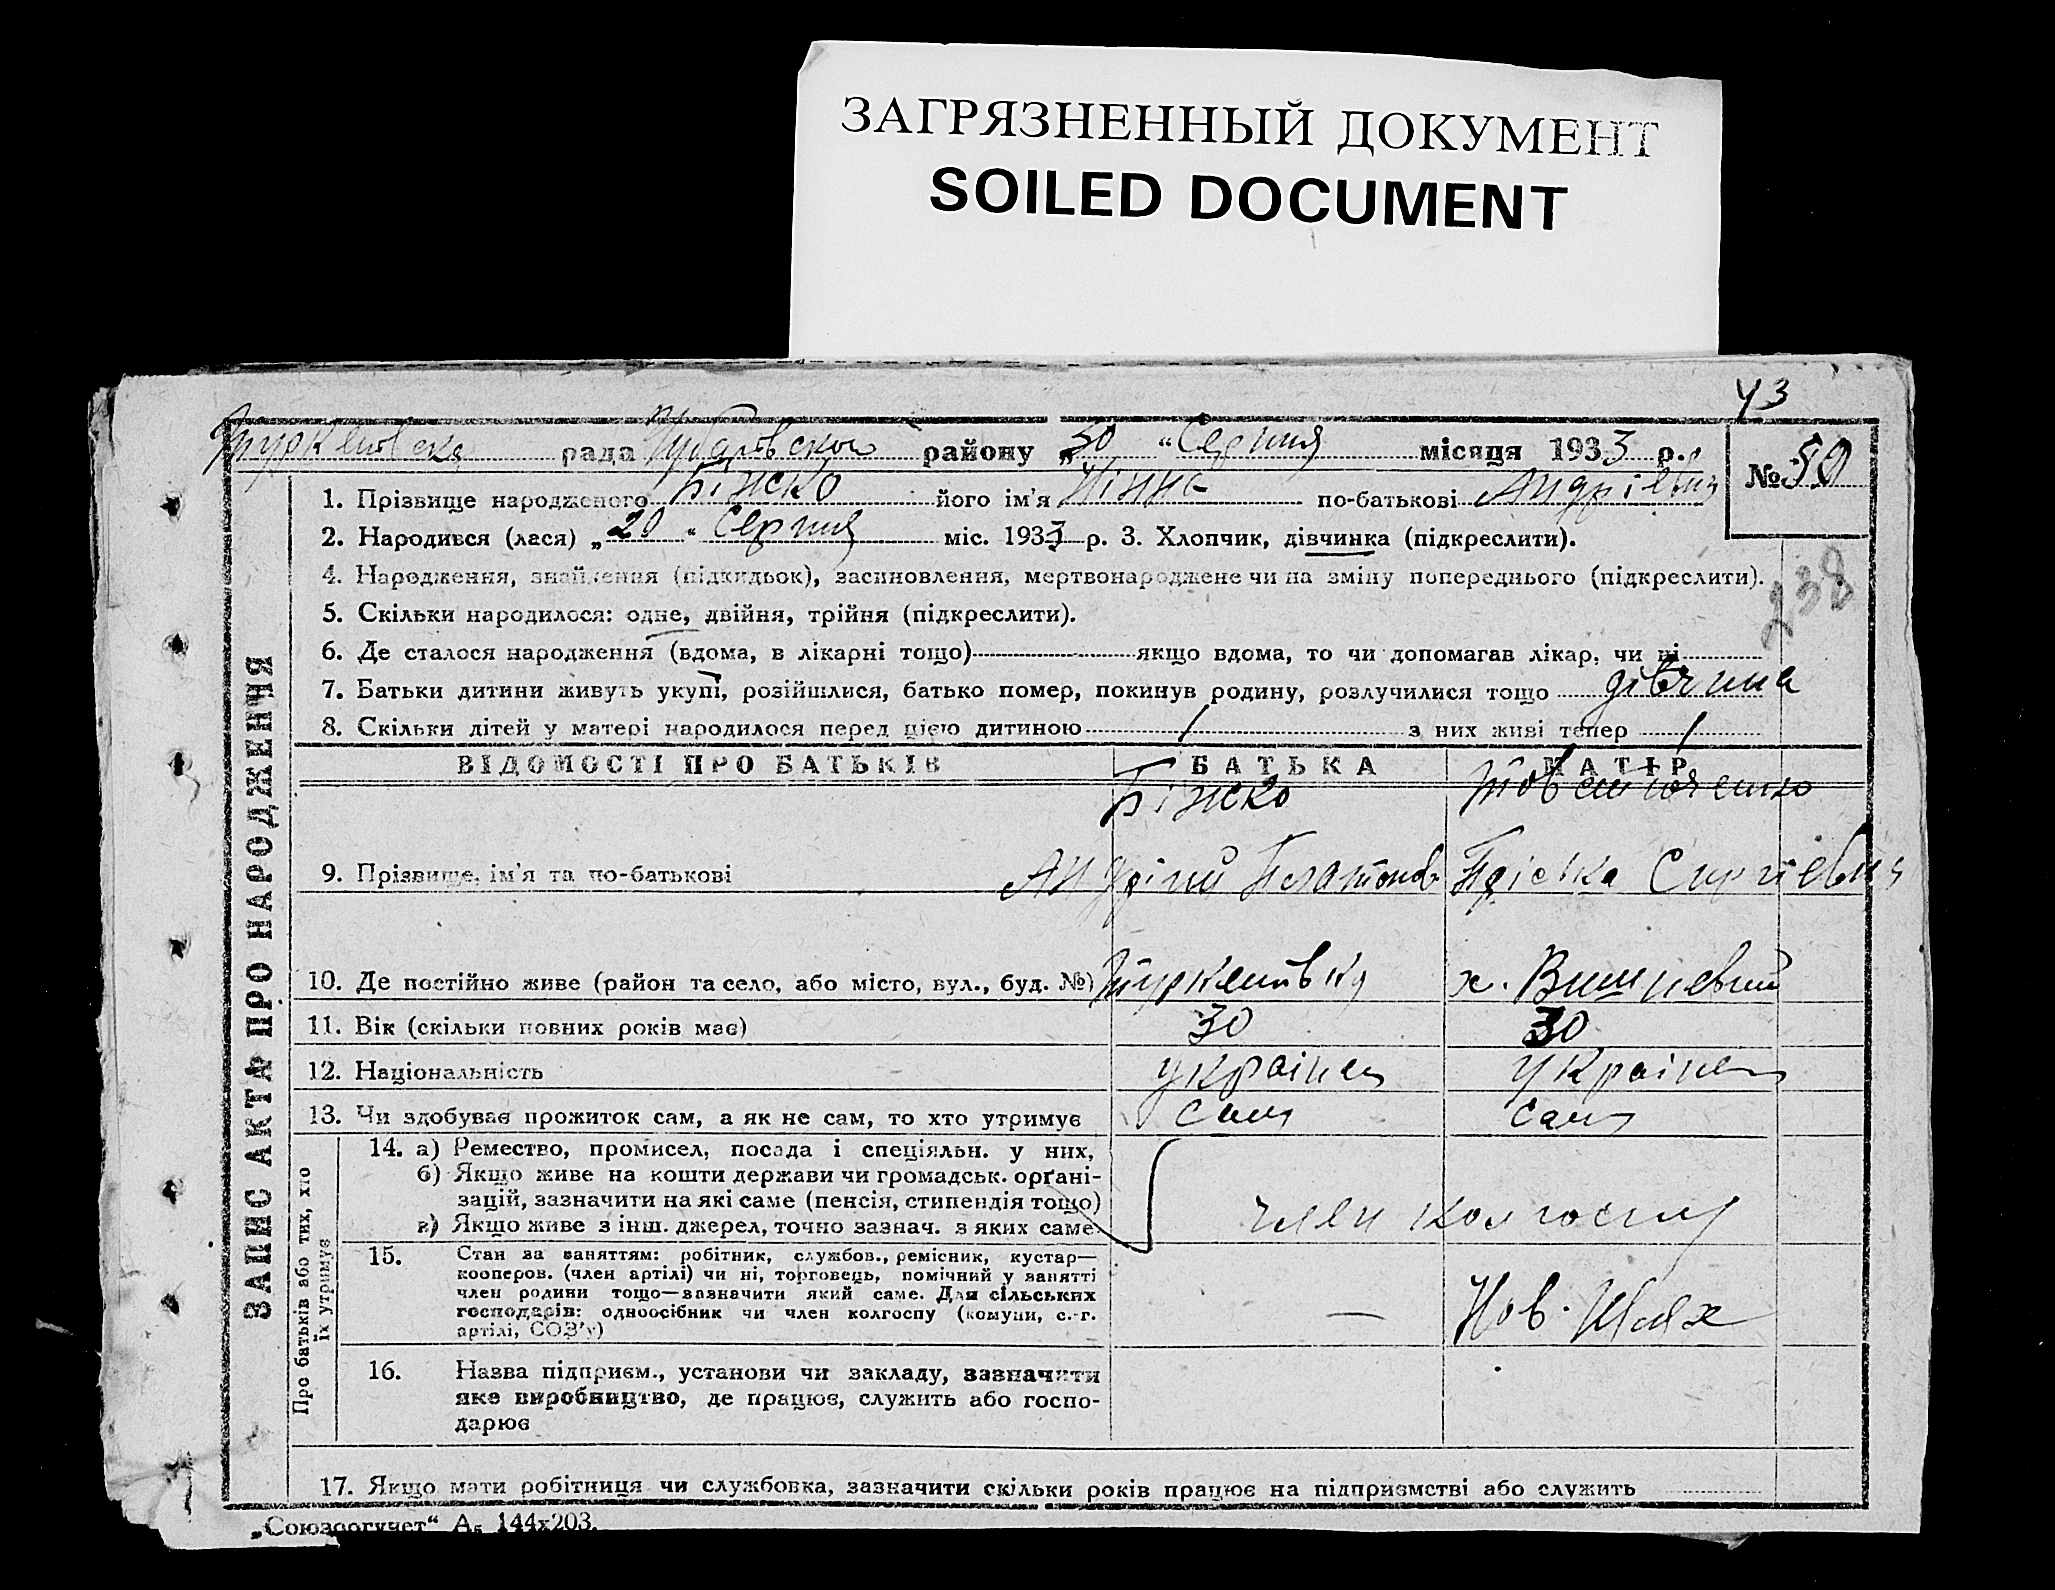 ЗАГРЯЗНЕННЫЙ ДОКУМЕНТ
SOILED DOCUMENT
43
рада Чубарівського району „30“ Серпня місяця 1933 р. № 50
1. Прізвище народженого Біжко його ім'я Нінна по-батькові Андрієвна
2. Народився (лася) „20“ Серпня міс. 1933 р. 3. Хлопчик, дівчинка (підкреслити).
4. Народження, знайдення (підкидьок), засиновлення, мертвонароджене чи на зміну попереднього (підкреслити).
238
5. Скільки народилося: одне, двійня, трійня (підкреслити).
6. Де сталося народження (вдома, в лікарні тощо) якщо вдома, то чи допомагав лікар, чи ні
7. Батьки дитини живуть укупі, розійшлися, батько помер, покинув родину, розлучилися тощо дівчина
8. Скільки дітей у матері народилося перед цією дитиною 1 з них живі тепер 1
ВІДОМОСТІ ПРО БАТЬКІВ БАТЬКА МАТІР
Біжко Товстюченко
9. Прізвище, ім'я та по-батькові Андрій Платонов
10. Де постійно живе (район та село, або місто, вул., буд. №) х. Вишневий
11. Вік (скільки повних років має) 30 30
12. Національність українец українец
13. Чи здобуває прожиток сам, а як не сам, то хто утримує сам сам
14. а) Ремество, промисел, посада і спеціяльн. у них,
б) Якщо живе на кошти держави чи громадськ. орґані-
зацій, зазначити на які саме (пенсія, стипендія тощо)
в) Якщо живе з інш. джерел, точно зазнач. з яких саме
член колгоспу
15. Стан за заняттям: робітник, службов., ремісник, кустар—
кооперов. (член артілі) чи ні, торговець, помічний у занятті
член родини тощо—зазначити який саме. Для сільських
господарів: одноосібник чи член колгоспу (комуни, с.-г.
артілі, СОЗ'у)
— Нов. Шлях
16. Назва підприєм., установи чи закладу, зазначити
яке виробництво, де працює, служить або госпо-
дарює
17. Якщо мати робітниця чи службовка, зазначити скільки років працює на підприємстві або служить
ЗАПИС АКТА ПРО НАРОДЖЕННЯ
Про батьків або тих, хто
їх утримує
„Союзоргучет“ А₅ 144х203.